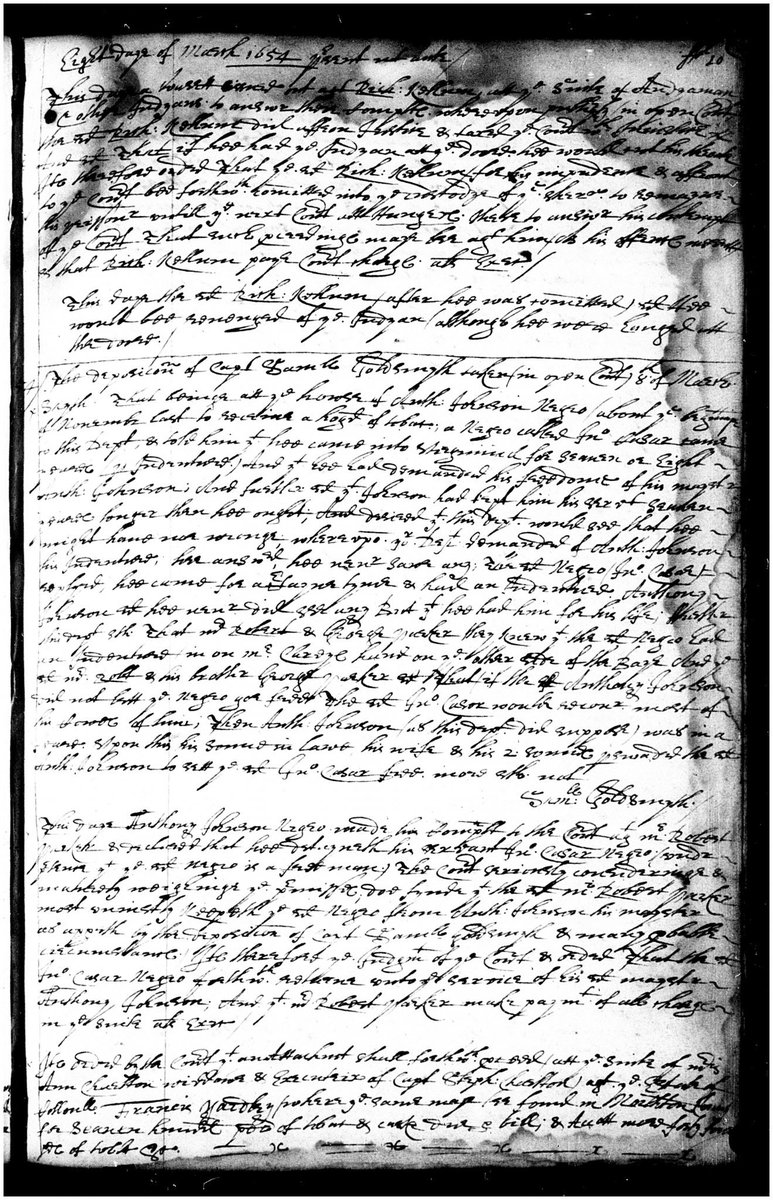 Eight daye of March 1654 psent ut ante /
fo: 10
This daye Rich: Kellum att ye Suite of Andiaman
& other Indyans to answer their Complt whereupon in open Court
the sd Rich: Kellum did affron Justice & ye Court
And sd That if hee had ye Indyan att ye doore hee would
Itt is therefore ordrd That ye sd Rich: Kellum for his impudence & affront
to ye Court bee forthwth comitted into ye custodye of ye Sherr to remayne
his prissonr untill ye next Court att Hungars there to answer his contempt
of ye Court That such pceedings maye bee agt him as his offence
& that Rich: Kellum paye Court charges als Exec /
This daye the sd Rich: Kellum (after hee was comitted) sd hee
would bee revenged of ye Indyan (although hee were hanged att
the doore /
The deposicon of Capt Samll Goldsmyth taken (in open Court) 8th of March
Sayth That beinge att ye howse of Anth: Johnson Negro (about ye beginninge
of Novembr last to receive a hogd of tobac) a Negro called Jno Casar came
to this Dept, & told him yt hee came into Virginia for seaven or Eight
yeares (p Indenture) And yt hee had demanded his freedome of his mayster
Anth: Johnson; And further sd yt Johnson had kept him his servt seaven
yeares longer than hee ought, And desired yt this dept would see that hee
might have noe wronge, whereupo ye Dept demanded of Anth: Johnson
his Indenture, hee answred, hee nevr sawe any; The sd Negro (Jno Casar)
replyed, hee came for a certayne tyme & had an Indenture Anthony
Johnson sd hee nevr did see any But yt hee had him for his life; Further
this dept sth That mr Robert & George Parker they knew yt the sd Negro had
an Indenture in on Mr Carye hund on ye other side of the Baye And ye
sd mr Robt & his brother George Parker sd That if the sd Anthony Johnson
did not lett ye Negro goe free The sd Jno Casor would recovr most of
his Cowes of him; Then Anth: Johnson (as this dept did suppose) was in a
feare. Upon this his Sonne in lawe, his wife & his 2 sonnes pswaded the sd
Anth: Johnson to sett ye sd Jno Casar free. more sth not
Samll Goldsmyth /
This daye Anthony Johnson Negro made his Complt to the Court agt mr Robert
Parker & declared that hee deteyneth his servant Jno Casar Negro (undr
ptence yt ye sd Negro is a free man) The Court seriously consideringe &
maturely weighinge ye pmisses, doe fynde yt the sd mr Robert Parker
most unjustly keepeth ye sd Negro from Anth: Johnson his mayster
as appeth by the deposition of Capt Samll Goldsmyth & many pbable
circumstances. Itt is therefore ye Judgmt of ye Court & ordred That the sd
Jno Casar Negro forthwth returne unto ye service of his sd mayster
Anthony Johnson, And yt mr Robert Parker make paymt of all charges
in ye suite als Exec /
Itt is ordrd by the Court yt an attachmt shall forthwth pceed (att ye suite of mrs
Ann Charlton widdowe & Executrix of Capt Steph: Charlton) agt ye Estate of
Francis Yardley (where ye same maye be found in Northton County
for Seaven hundred of tobac & caske due p bill; & Anott more forty
of tobac &c.